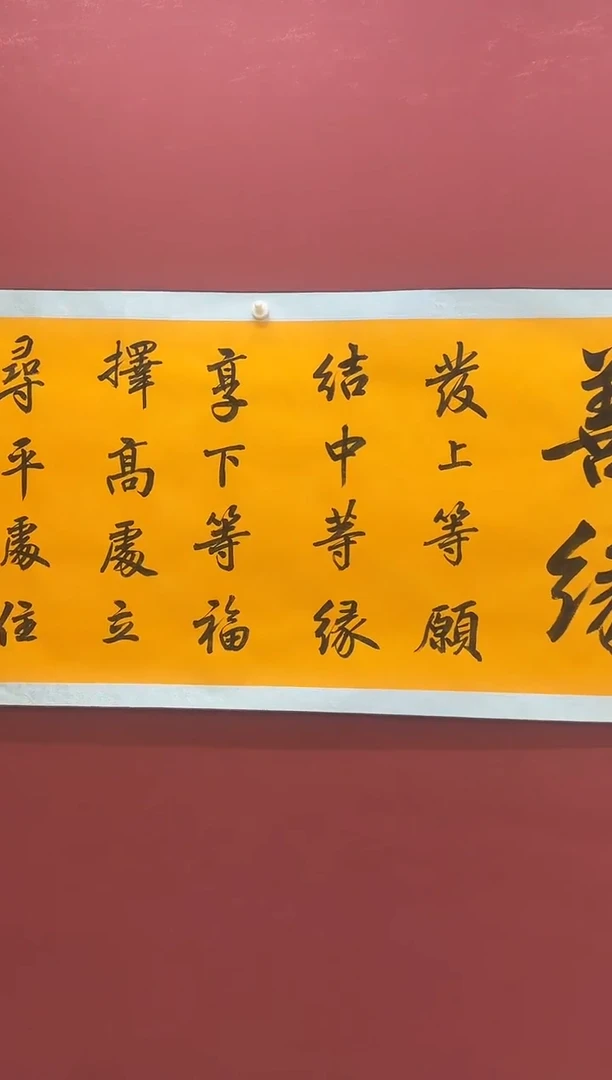 善缘
發上等願
结中等缘
享下等福
擇高處立
尋平處住